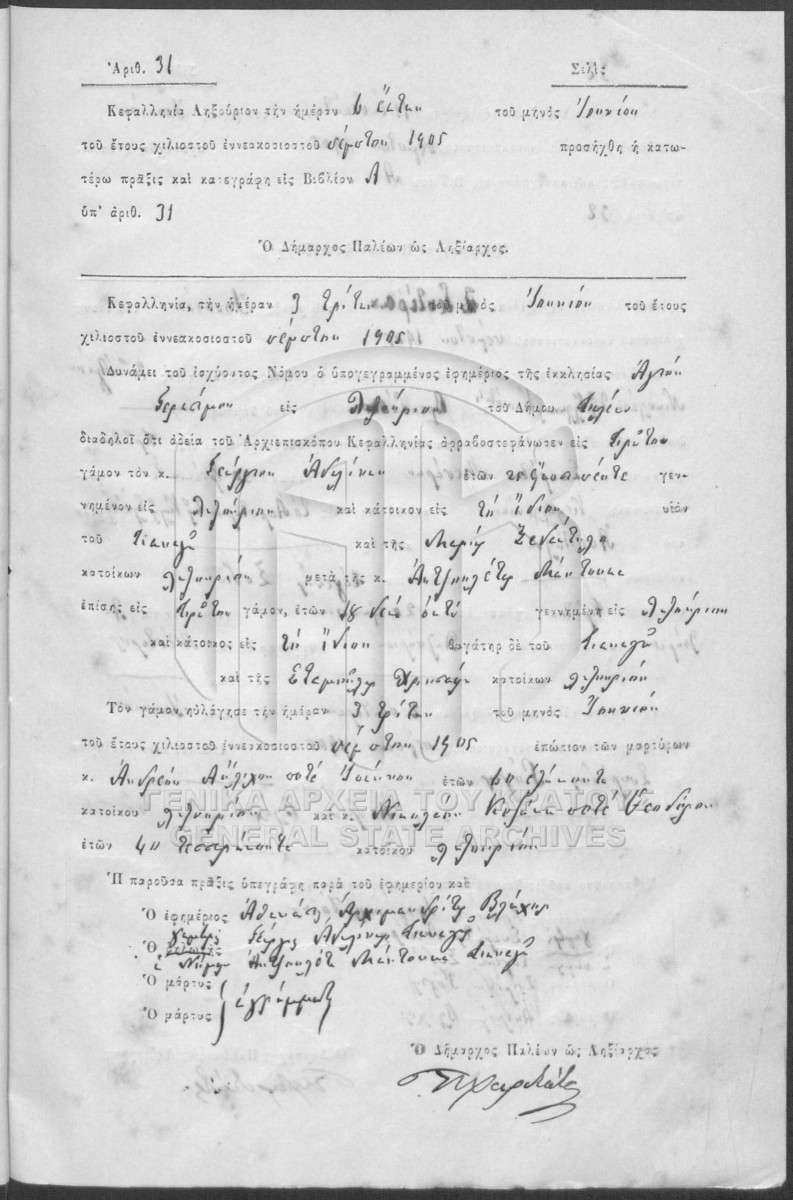 Ἀριθ. 31 Σελὶς
Κεφαλληνία Ληξούριον τὴν ἡμέραν 6 ἕκτην τοῦ μηνὸς Ἰουνίου
τοῦ ἔτους χιλιοστοῦ ἐννεακοσιοστοῦ πέμπτου 1905 προσήχθη ἡ κατω-
τέρω πρᾶξις καὶ κατεγράφη εἰς Βιβλίον Α
ὑπ' ἀριθ. 31
Ὁ Δήμαρχος Παλέων ὡς Ληξίαρχος.
Κεφαλληνία, τὴν ἡμέραν 3 τρίτην μηνὸς Ἰουνίου τοῦ ἔτους
χιλιοστοῦ ἐννεακοσιοστοῦ πέμπτου 1905
Δυνάμει τοῦ ἰσχύοντος Νόμου ὁ ὑπογεγραμμένος ἐφημέριος τῆς ἐκκλησίας Ἁγίου
Γερασίμου εἰς Ληξούριον τοῦ Δήμου Παλέων
διαδηλοῖ ὅτι ἀδείᾳ τοῦ Ἀρχιεπισκόπου Κεφαλληνίας ἀρραβοστεφάνωσεν εἰς πρῶτον
γάμον τὸν κ. Γεώργιον ἐτῶν 25 εἴκοσι πέντε γεν-
νημένον εἰς Ληξούριον καὶ κάτοικον εἰς τὴ ἴδιον υἱὸν
τοῦ Παναγῆ καὶ τῆς Μαρίας
κατοίκων Ληξουρίου μετὰ τῆς κ. Ἀντζουλέτας Μάντουκα
ἐπίσης εἰς πρῶτον γάμον, ἐτῶν 18 δέκα ὀκτὼ γεννημένη εἰς Ληξούριον
καὶ κάτοικος εἰς τὴ ἴδιον θυγάτηρ δὲ τοῦ Παναγῆ
καὶ τῆς Σταμούλας κατοίκων Ληξουρίου
Τὸν γάμον ηὐλόγησε τὴν ἡμέραν 3 τρίτην τοῦ μηνὸς Ἰουνίου
τοῦ ἔτους χιλιοστοῦ ἐννεακοσιοστοῦ πέμπτου 1905 ἐπώπιον τῶν μαρτύρων
κ. Ἀνδρέου ποτὲ Ἰωάννου ἐτῶν 60 ἑξήκοντα
κατοίκου Ληξουρίου καὶ κ. Νικολάου ποτὲ Θεοδώρου
ἐτῶν 40 τεσσαράκοντα κατοίκου Ληξουρίου
Ἡ παροῦσα πρᾶξις ὑπεγράφη παρὰ τοῦ ἐφημερίου καὶ
Ὁ ἐφημέριος Ἀθανάσιος Ἀρχιμανδρίτης Βλάχος
Ὁ γαμβρὸς Γεώργιος Παναγῆ
ἡ Νύμφη Ἀντζουλέτα Μάντουκα Παναγῆ
Ὁ μάρτυς
Ὁ μάρτυς ἀγράμματοι
Ὁ Δήμαρχος Παλέων ὡς Ληξίαρχος
ΓΕΝΙΚΑ ΑΡΧΕΙΑ ΤΟΥ ΚΡΑΤΟΥΣ
GENERAL STATE ARCHIVES